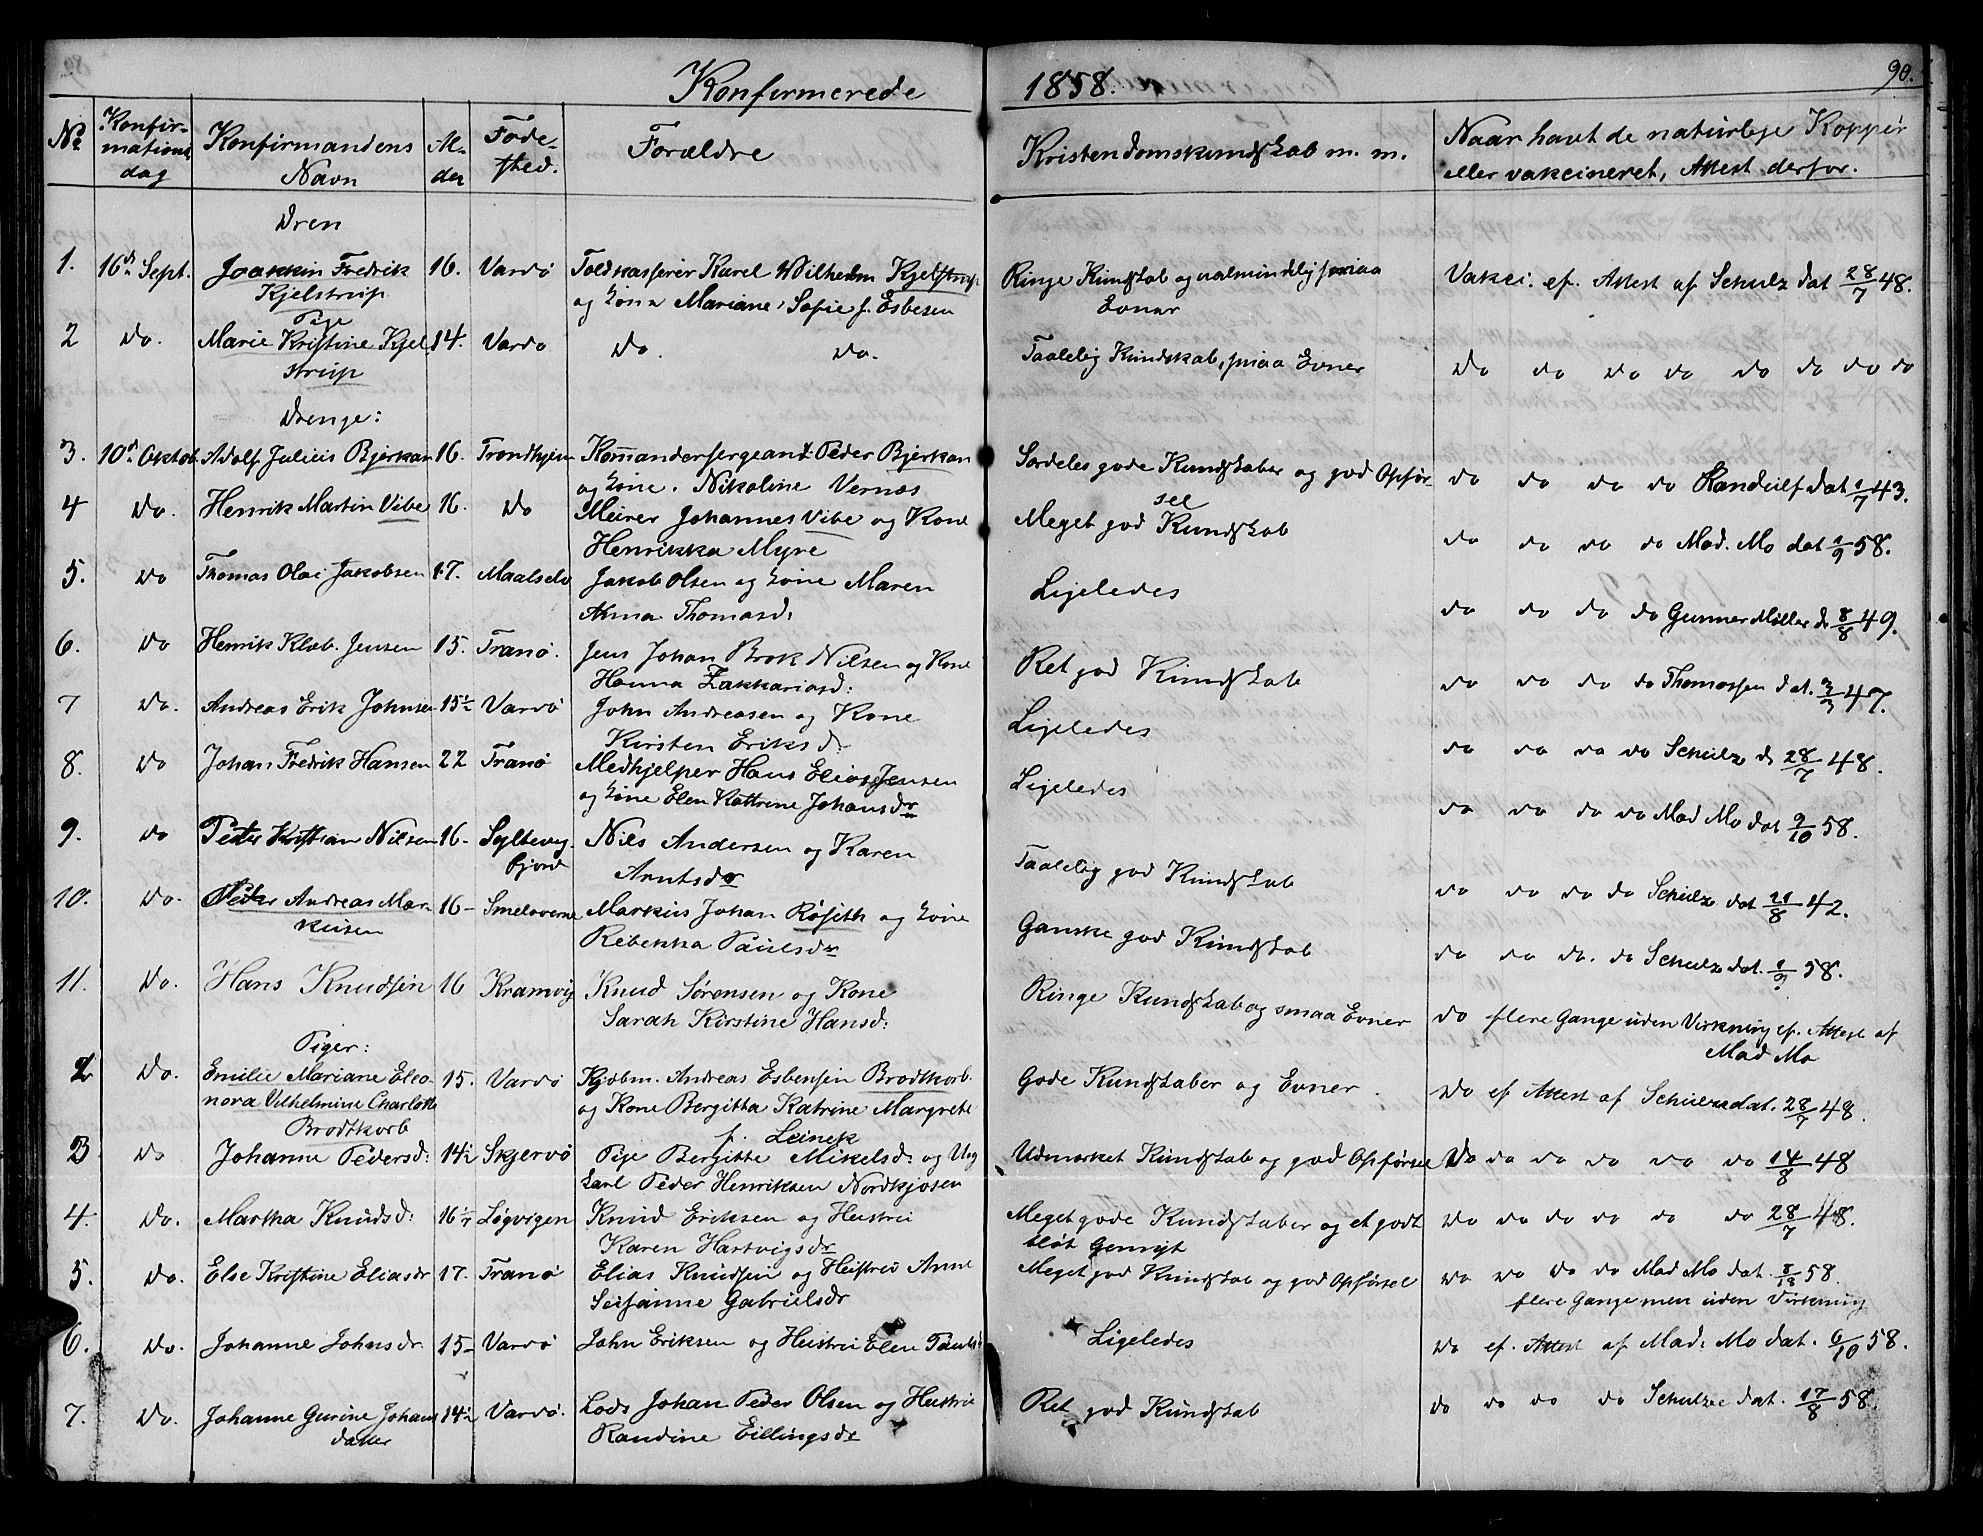 Konfirmerede 1858. 90.
No Konfirmationsdag Konfirmandens Navn Alder Fødested. Forældre Kristendomskundskab m. m. Naar havt de naturlige Kopper eller vakcineret, Attest derfor.
Dren
1. 16d Sept. Joakkin Fredrik 16. Vardø Toldkasserer Karel Wilhelm Kjelstrup Ringe Kundskab og ualmindelig smaa Vakci. ef. Attest af Schulz dat 28/7 48.
Kjelstrup og Kone Mariane Sofie f. Esbesen Evner
Pige
2 Do. Marie Kristine Kjel 14. Vardø Do. Do. Taalelig Kundskab, smaa Evner Do do Do do do do do do
strup
Drenge:
3. 10d Oktob. Adolf Julius Bjerkan 16. Trondhjem Kommandersergeant Peder Bjerkan Særdeles gode Kundskaber og god Opfør- do do do do Randulf dat 1/7 43.
og Kone. Nikoline Vernæs sel
4 Do. Henrik Martin Vibe 16. Do Meirer Johannes Vibe og Kone Meget god Kundskab do do do do Mad. Mo dat 1/9 58.
Henrikka Myre
5. Do Thomas Olai Jakobsen 17. Maalselv Jakob Olsen og Kone Maren Ligeledes do do do do Gunner Møller d 8/8 49.
Anna Thomasd:
6. Do Henrik Klab. Jensen 15. Tranø. Jens Johan Brok Nilsen og Kone Ret god Kundskab do do do do Thomassen dat. 3/3 47.
Hanna Zakkariasd:
7 Do. Andreas Erik Johnsen 15½ Vardø John Andreasen og Kone Ligeledes do do do do Schulz d 28/7 48.
Kirsten Eriksd:
8. Do Johan Fredrik Hansen 22 Tranø Medhjelper Hans Elias Jensen Ligeledes do do do do Mad Mo dat 9/10 58.
og Kone Elen Kattrine Johansdr
9. Do Peder Kristian Nilsen 16- Syltevig Nils Andersen og Karen Taalelig god Kundskab do do do do Schulz dat 21/8 42.
fjord Arntsdr
10. Do. Peder Andreas Mar 16- Smelværne Markus Johan Røseth og Kone Ganske god Kundskab do do do. do Schulz dat. 1/9 58.
kusen Rebekka Paulsdr
11. Do. Hans Knudsen 16 Kramvig Knud Sørensen og Kone Ringe Kundskab og smaa Evner do flere Gange uden Virkning ef. Attest af
Sarah Kirstine Hansd: Mad Mo
Piger:
2 Do. Emilie Mariane Eleo- 15. Vardø Kjøbm. Andreas Esbensen Brodtkorb. Gode Kundskaber og Evner Do ef Attest af Schulze dat. 28/7 48.
nora Vilhelmine Charlotte og Kone Bergitta Katrine Margrete
Brodtkorb f. Leinek
3 Do Johanne Pedersd: 14½ Skjervø Pige Bergitte Mikelsd: og Ung Udmerket Kundskab og god Opførsel Do do do do do do 14/8 48
karl Peder Henriksen Nordkjosen
4. Do. Martha Knudsd: 16½ Løgvigen Knud Eriksen og Hustru Meget gode Kundskaber og et godt do do do do do do 28/7 48.
Karen Hartvigsdr
5. Do. Else Kristine Eliasdr 17. Tranø Elias Knudsen og Hustru Anne Meget god Kundskab og god Opførsel Do do do do Mad Mo dat 8/12 58.
Susanne Gabrielsdr flere Gange men uden Virkning
6. Do. Johanne Johnsdr 15- Vardø John Eriksen og Hustru Elen Paulsd Ligeledes Do ef. Attest af Mad. Mo dat. 6/10 58.
7. Do. Johanne Gurine Johans 14½ Vardø. Lods Johan Peder Olsen og Hustru Ret god Kundskab do do do do Schulze dat. 17/8 58.
datter Randine Eillingsdr